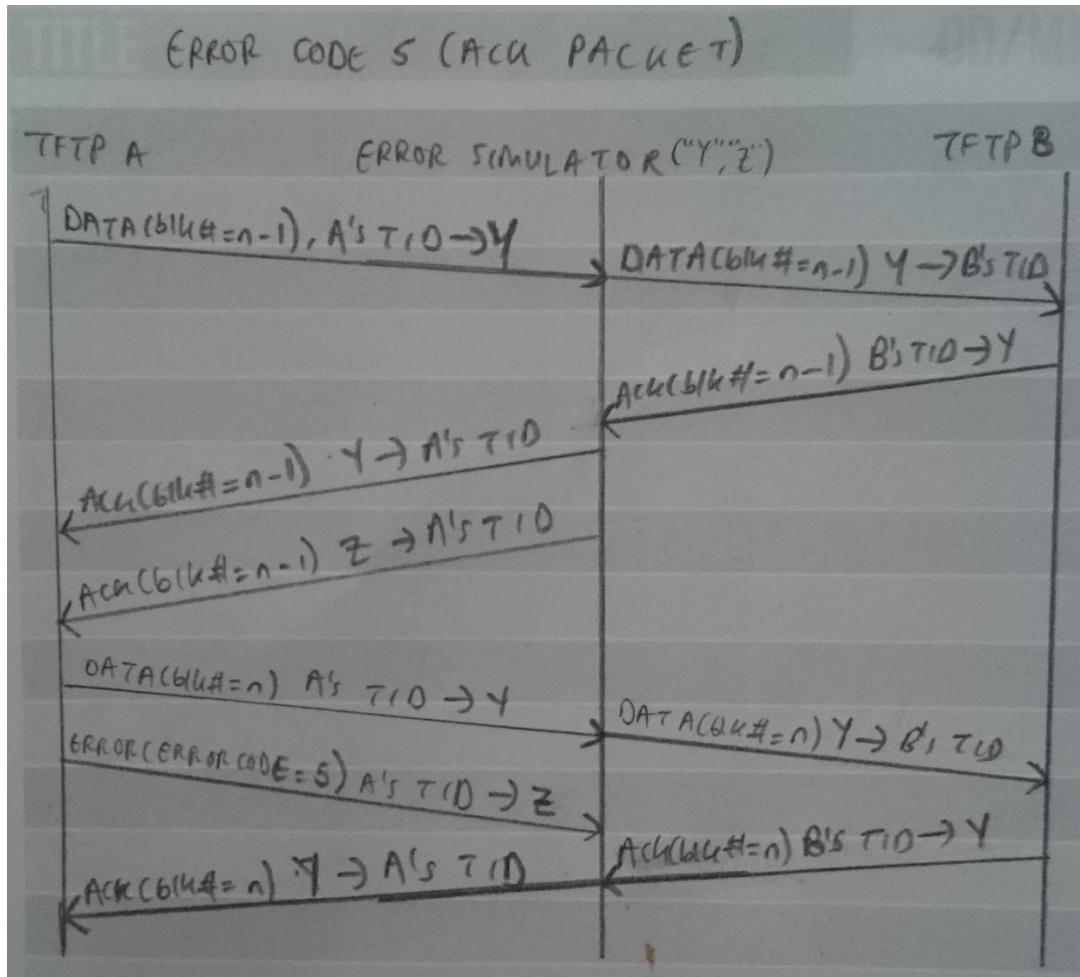 TITLE
DD/MM
ERROR CODE 5 (ACK PACKET)
TFTP A
ERROR SIMULATOR ("Y", "Z")
TFTP B
DATA(blk#=n-1), A's TID→Y
DATA(blk#=n-1) Y→B's TID
ACK(blk#=n-1) B's TID→Y
ACK(blk#=n-1) Y→A's TID
ACK(blk#=n-1) Z→A's TID
DATA(blk#=n) A's TID→Y
DATA(blk#=n) Y→B's TID
ERROR(ERROR CODE=5) A's TID→Z
ACK(blk#=n) B's TID→Y
ACK(blk#=n) Y→A's TID